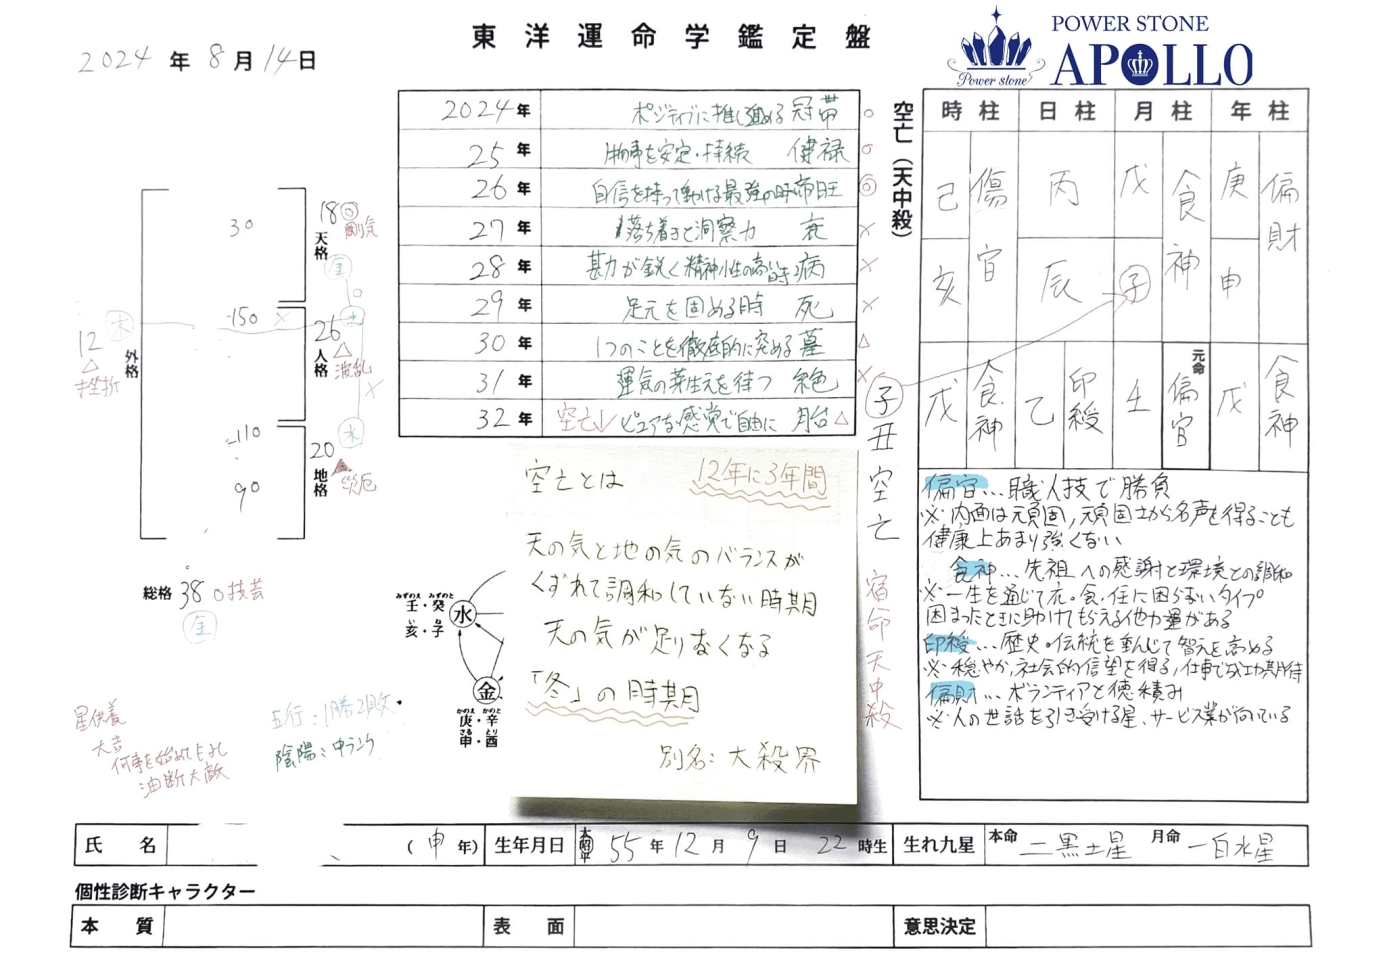 東洋運命学鑑定盤
2024年8月14日
Power stone
POWER STONE
APOLLO
2024年 ポジティブに推し進める 冠帯 ○
25年 物事を安定・持続 健禄 ○
26年 自信を持って動ける最強の時 帝旺 ◎
27年 落ち着きと洞察力 衰 ×
28年 勘が鋭く精神性の高い時 病 ×
29年 足元を固める時 死 ×
30年 1つのことを徹底的に究める 墓 △
31年 運気の芽生えを待つ 絶 ×
32年 空亡↓ ピュアな感覚で自由に 胎 △
空亡(天中殺)
子丑空亡
宿命天中殺
時柱 日柱 月柱 年柱
己 傷官 丙 戊 食神 庚 偏財
亥 辰 子 申
元命
戊 食神 乙 印綬 壬 偏官 戊 食神
偏官…職人技で勝負
※内面は頑固,頑固さから名声を得ることも
健康上あまり強くない
食神…先祖への感謝と環境との調和
※一生を通じて衣・食・住に困らないタイプ
困ったときに助けてもらえる他力運がある
印綬…歴史・伝統を重んじて智元を高める
※穏やか,社会的信望を得る,仕事で成功期待
偏財…ボランティアと徳積み
※人の世話を引き受ける星、サービス業が向いている
30
18 ◎ 剛気
天格
金
-150 ×
26 △ 波乱
人格
土
12 木
△
挫折
外格
-110
90
20 ▲ 災厄
地格
水
総格 38 ○技芸
金
星供養
大吉
何事を始めてもよし
油断大敵
五行:1勝2敗
陰陽:中ランク
空亡とは 12年に3年間
天の気と地の気のバランスが
くずれて調和していない時期
天の気が足りなくなる
「冬」の時期
別名:大殺界
みずのえ みずのと
壬・癸
い ね
亥・子
水
金
かのえ かのと
庚・辛
さる とり
申・酉
氏名 (申年) 生年月日 大昭平 55年12月9日22時生 生れ九星 本命 二黒土星 月命 一白水星
個性診断キャラクター
本質 表面 意思決定